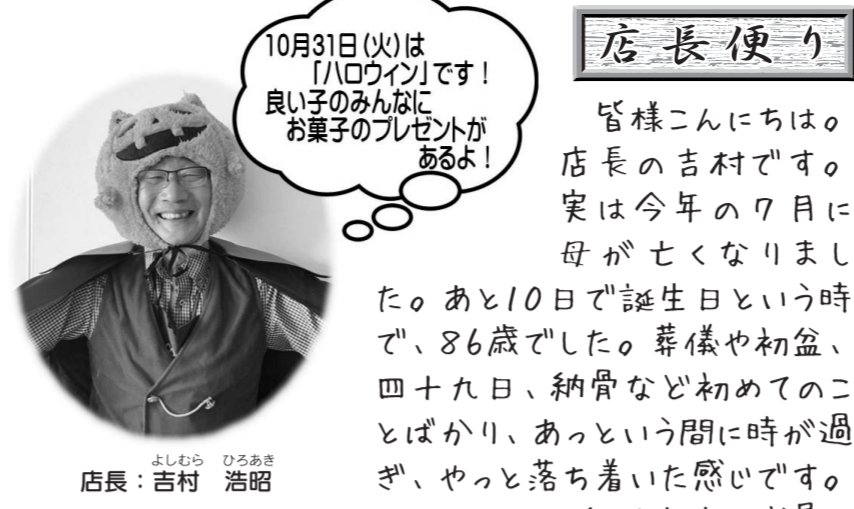 10月31日(火)は
「ハロウィン」です!
良い子のみんなに
お菓子のプレゼントが
あるよ!
よしむら ひろあき
店長:吉村 浩昭
店長便り
皆様こんにちは。
店長の吉村です。
実は今年の7月に
母が亡くなりまし
た。あと10日で誕生日という時
で、86歳でした。葬儀や初盆、
四十九日、納骨など初めてのこ
とばかり、あっという間に時が過
ぎ、やっと落ち着いた感じです。